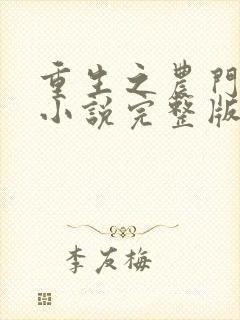 重生之農門
小說完整版
李友梅